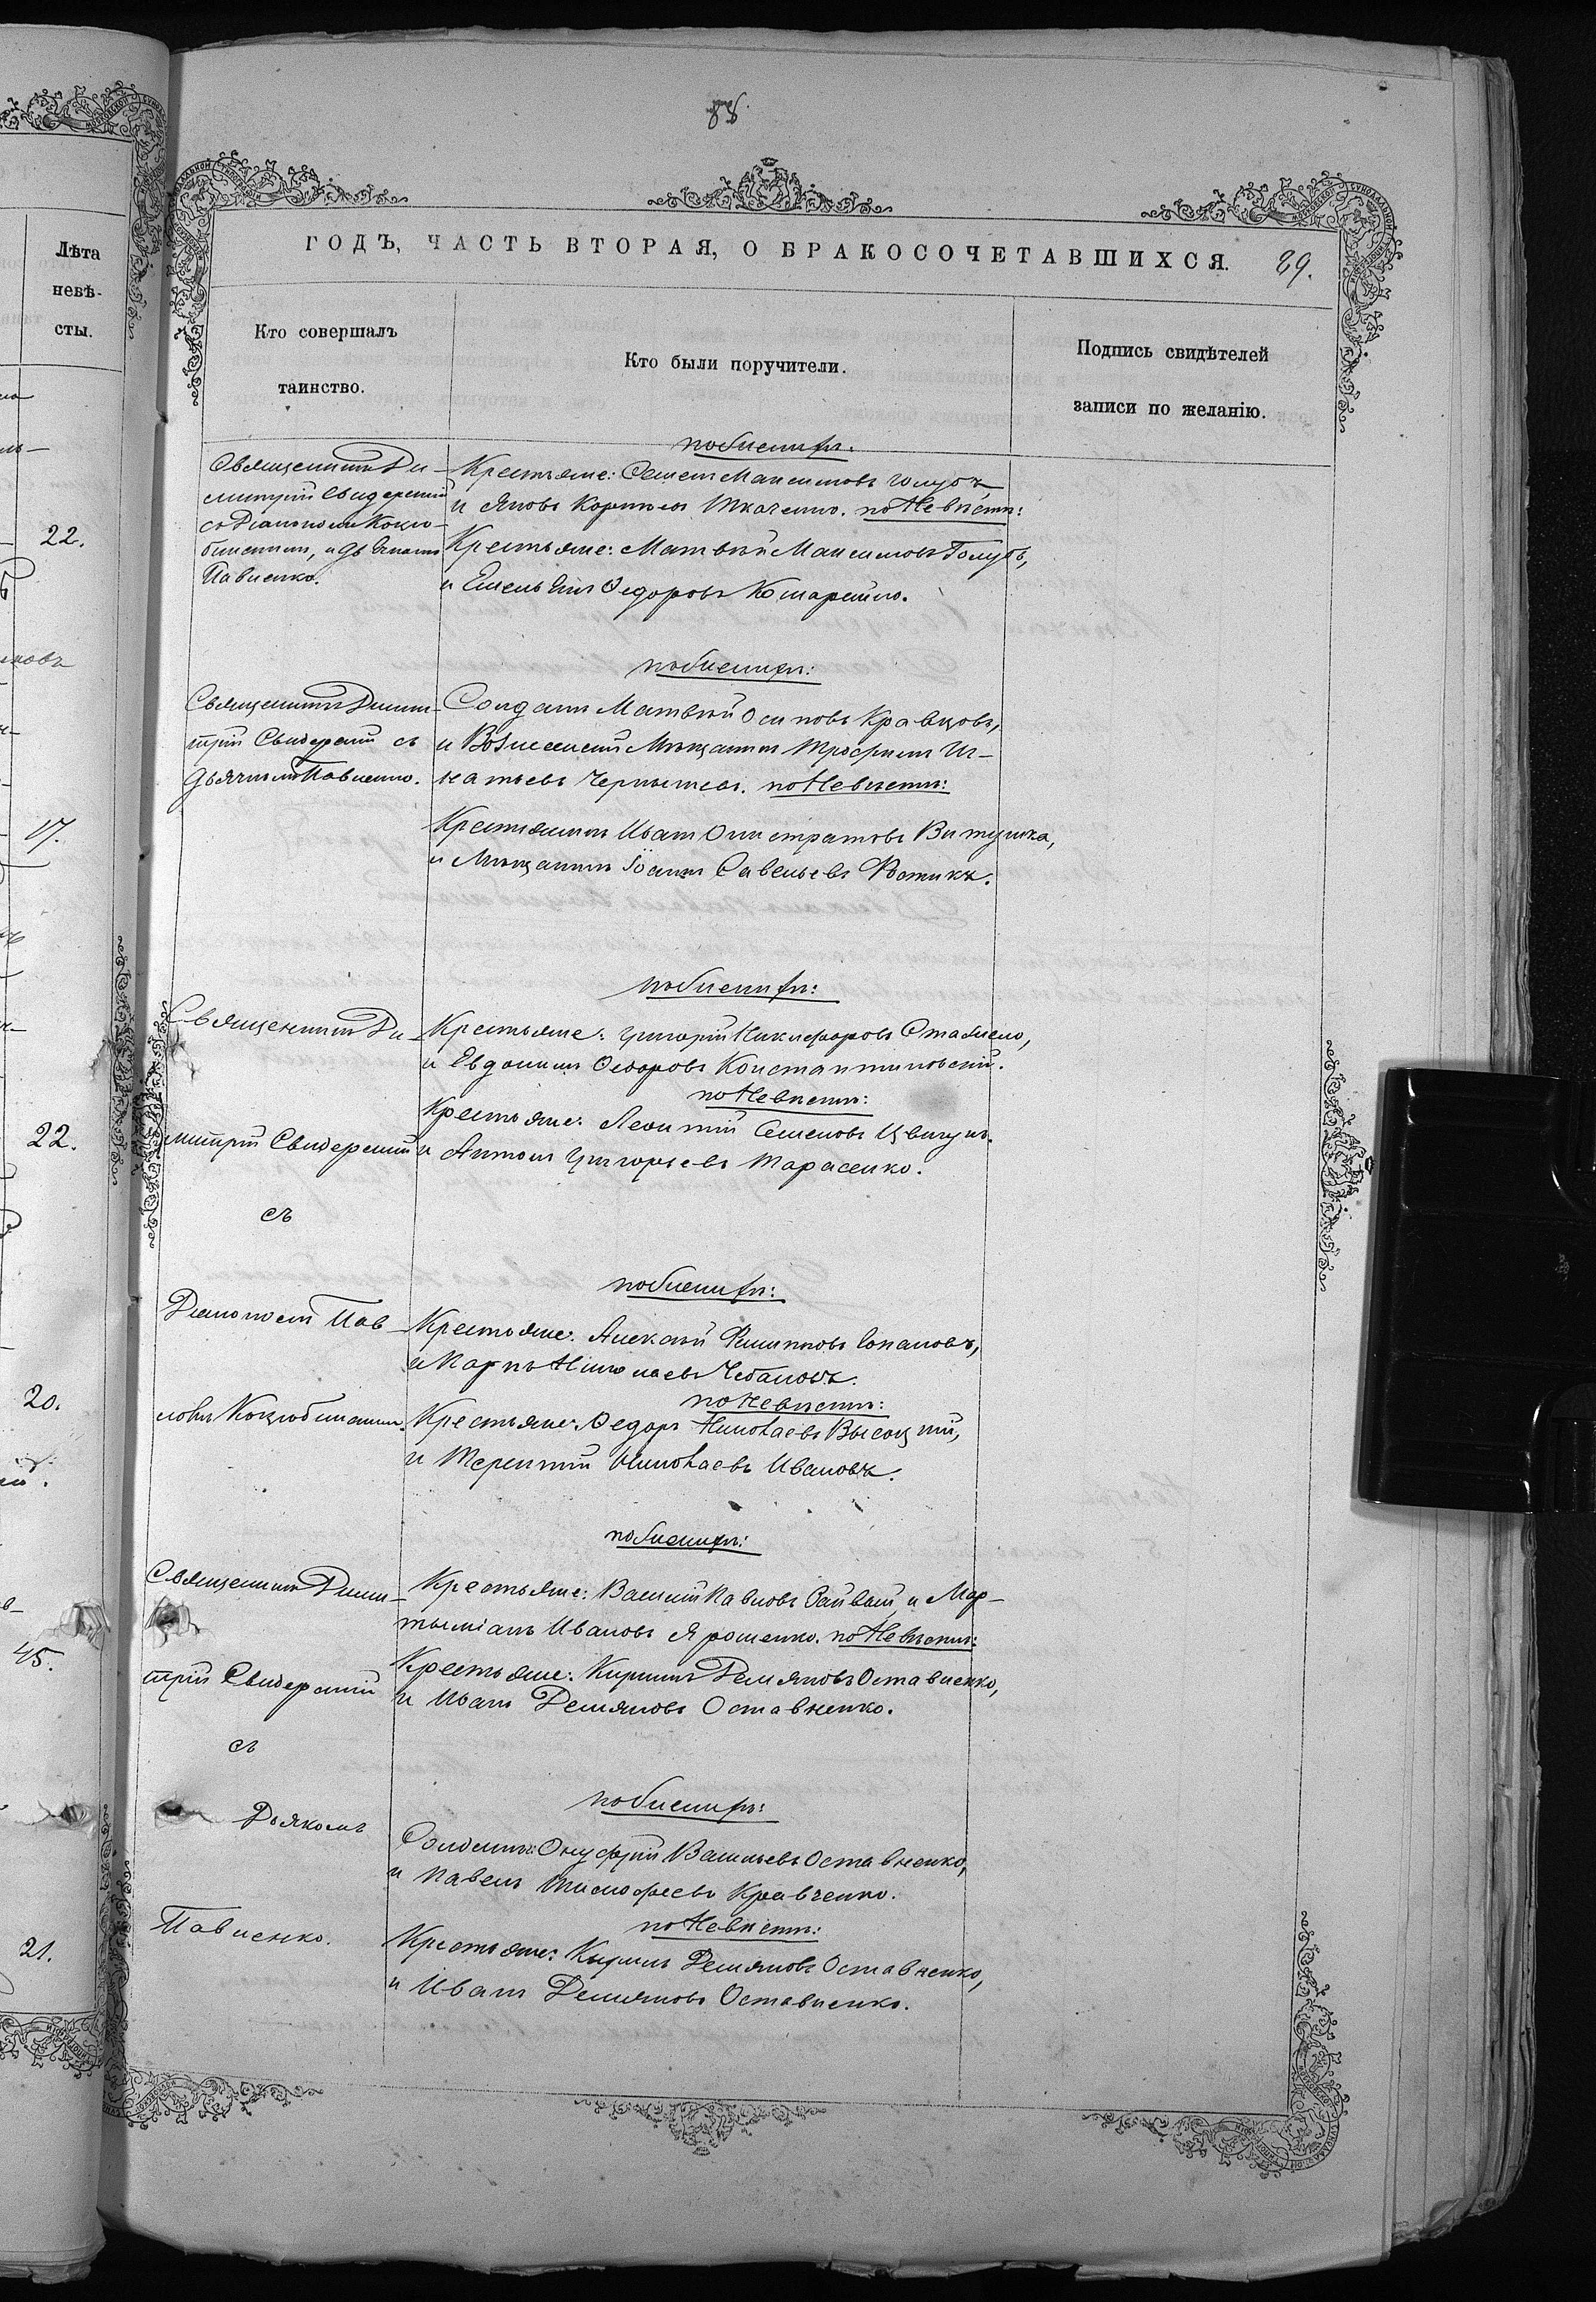 88.
ГОДЪ, ЧАСТЬ ВТОРАЯ, О БРАКОСОЧЕТАВШИХСЯ. 89.
Лѣта
невѣ-
сты.
22.
17.
22.
20.
45.
21.
Кто совершалъ
таинство.
Кто были поручители.
Подпись свидѣтелей
записи по желанію.
Священникъ Ди-
митрій Свидерскій
съ Діакономъ Коцю-
бинскимъ, и
Павленко.
по Женихѣ:
Крестьяне: Семенъ Максимовъ Голубъ,
и Яковъ Ткаченко. по Невѣстѣ:
Крестьяне: Матвѣй Максимовъ Голубъ,
и Емельянъ Федоровъ
Священникъ Дими-
трій Свидерскій съ
дьячкомъ Павленко.
по Женихѣ:
Солдатъ Матвѣй Осиповъ Кравцовъ,
и Вознесенскій Мѣщанинъ Трофимъ Иг-
натьевъ Чернышевъ. по Невѣстѣ:
Крестьянинъ Иванъ Онистратовъ Витушка,
и Мѣщанинъ Іоаннъ Савельевъ
Священникъ Ди-
митрій Свидерскій
съ
Діакономъ Пав-
ломъ Коцюбинскимъ.
по Женихѣ:
Крестьяне: Григорій Никифоровъ
и Евдокимъ Федоровъ Константиновскій.
по Невѣстѣ:
Крестьяне: Леонтій Семеновъ Цвигунъ
и Антонъ Григорьевъ Тарасенко.
по Женихѣ:
Крестьяне: Алексѣй Филиповъ
и Карпъ Николаевъ Чебановъ.
по Невѣстѣ:
Крестьяне: Федоръ Николаевъ Высоцкій,
и Терентій Николаевъ Ивановъ.
Священникъ Дими-
трій Свидерскій
съ
Дьякомъ
Павленко.
по Женихѣ:
Крестьяне: Василій Павловъ и Мар-
тыміанъ Ивановъ Ярошенко. по Невѣстѣ:
Крестьяне: Кирилъ Демяновъ Оставненко,
и Иванъ Демяновъ Оставненко.
по Женихѣ:
Солдаты: Онуфрій Васильевъ Оставненко,
и Павелъ Тимофеевъ Кравченко.
по Невѣстѣ:
Крестьяне: Кирилъ Демяновъ Оставненко,
и Иванъ Демяновъ Оставненко.